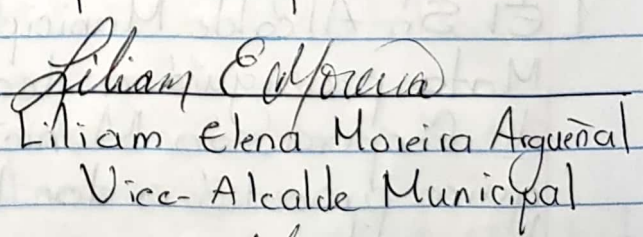 Liliam E Moreira
Liliam Elena Moreira Argueñal
Vice-Alcalde Municipal